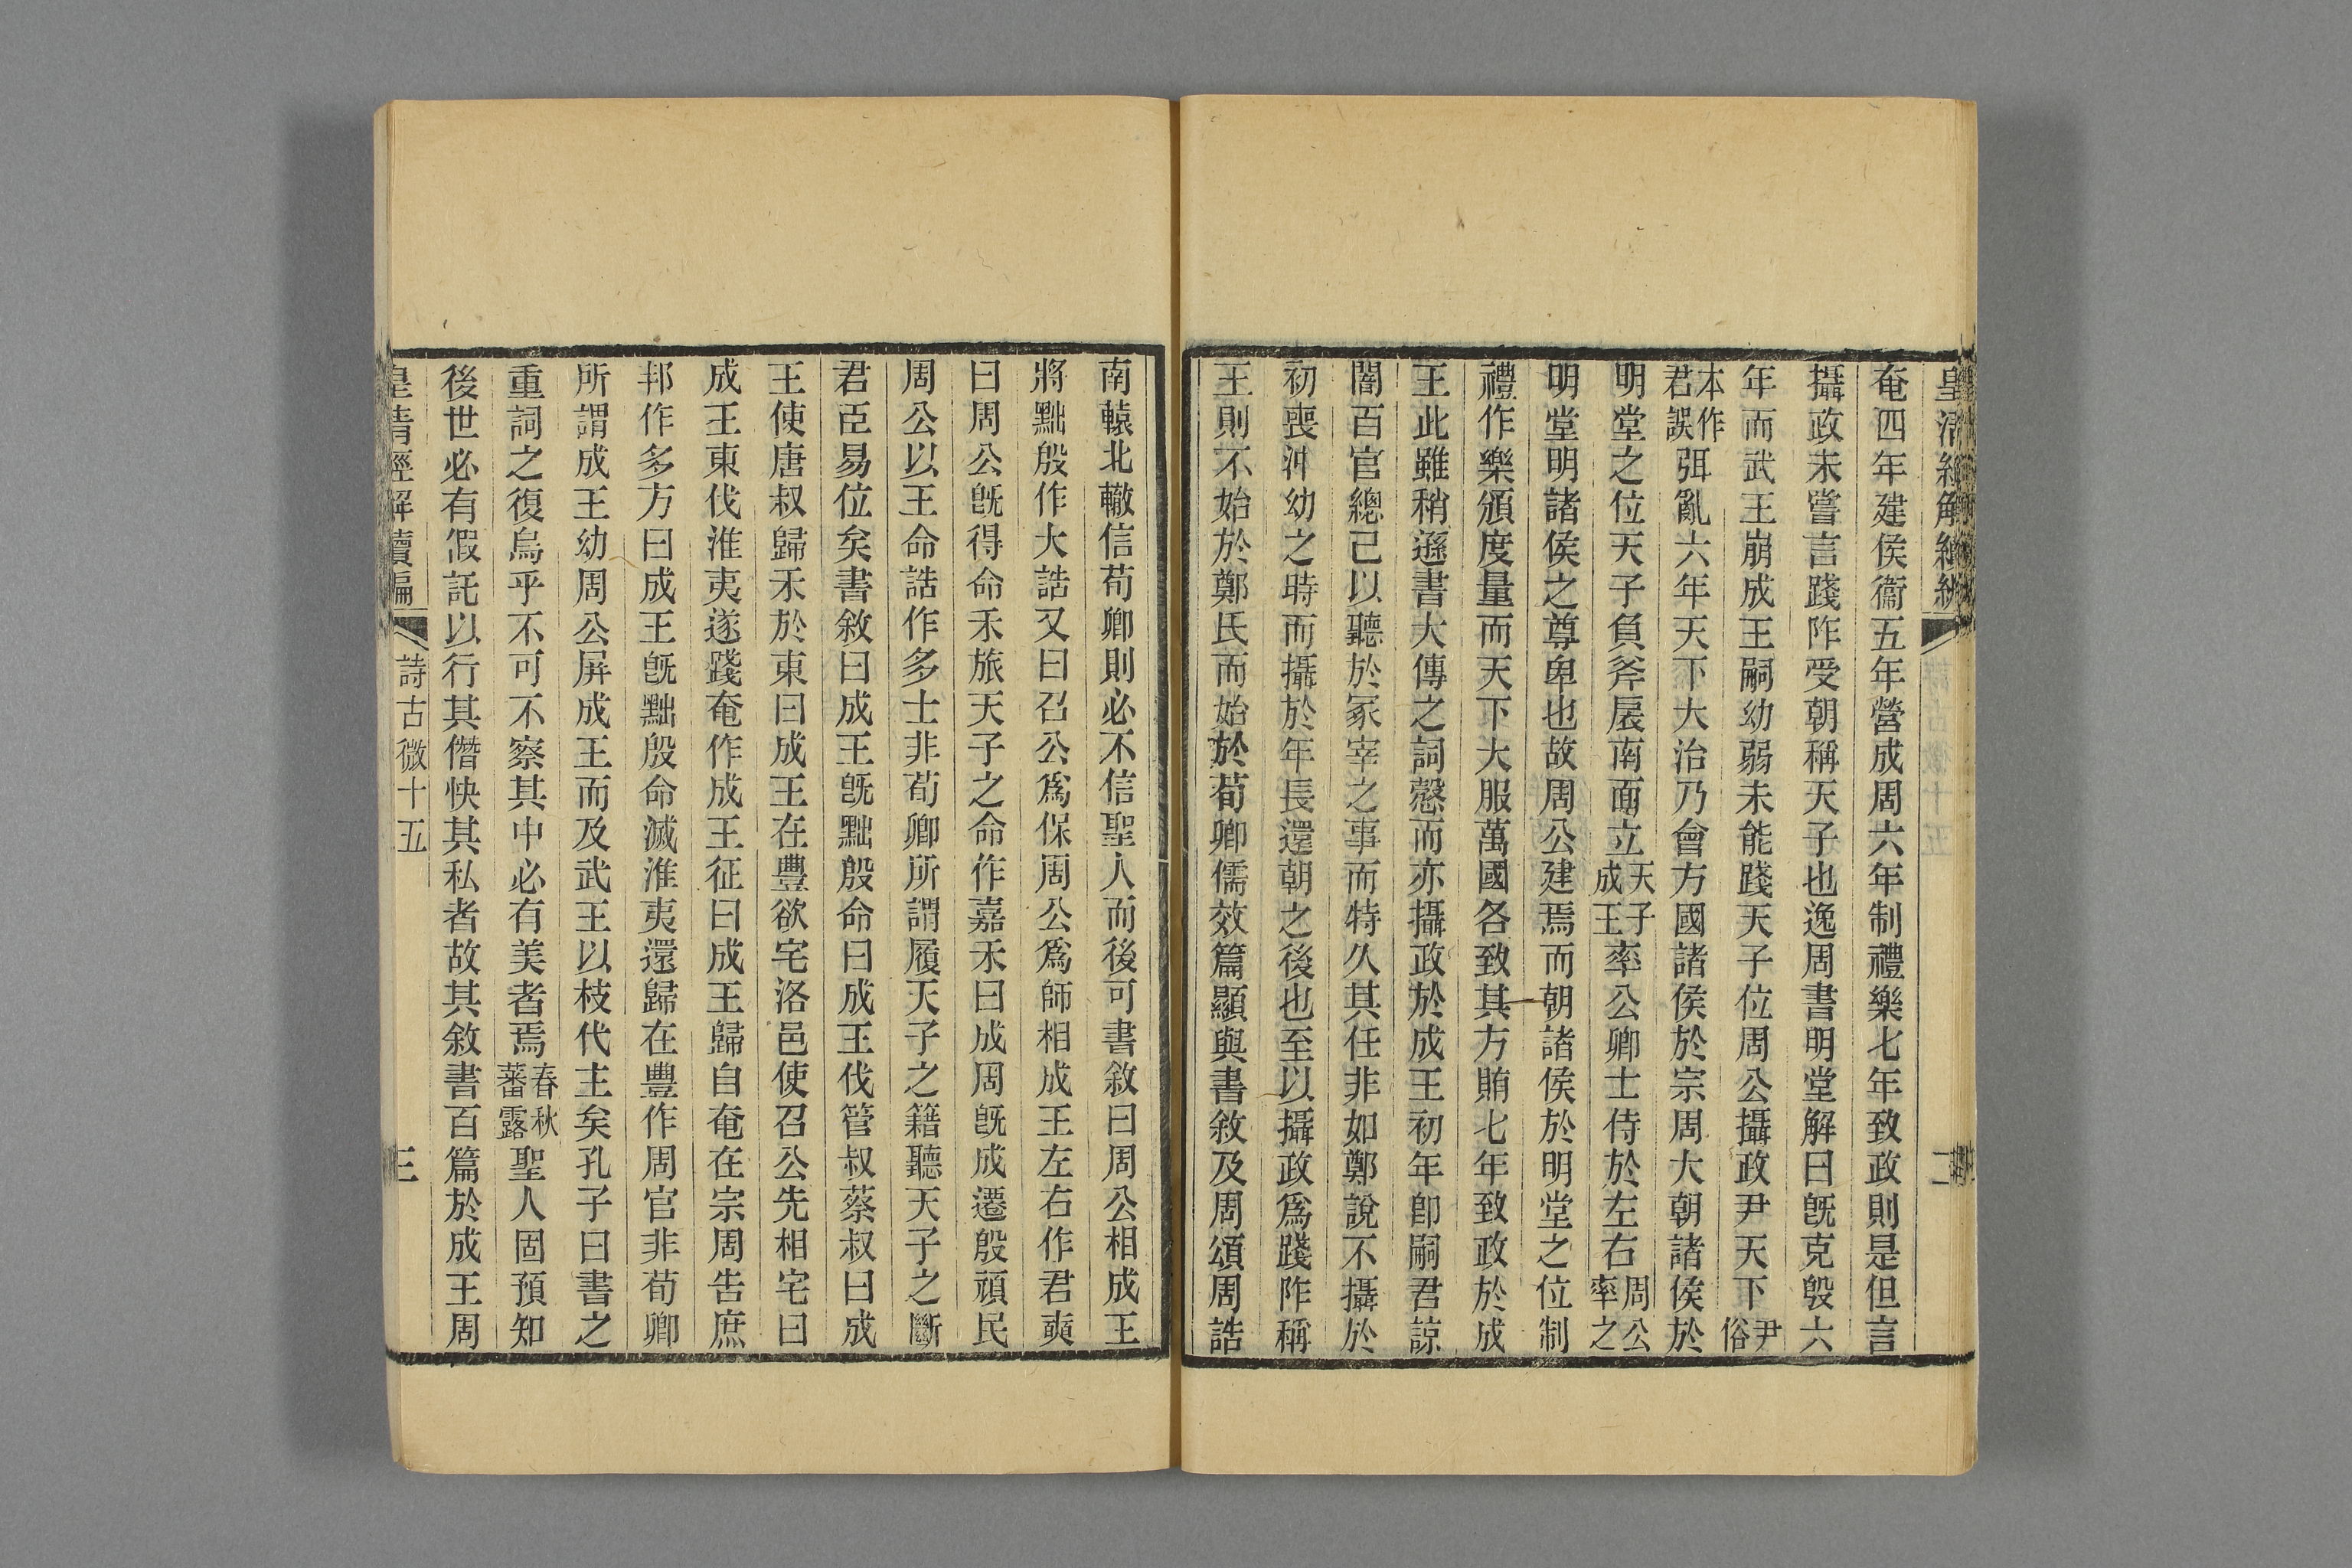 奄四年建侯衞五年營成周六年制禮樂七年致政則是但言
攝政未嘗言踐阼受朝稱天子也逸周書明堂解曰旣克殷六
年而武王崩成王嗣幼弱未能踐天子位周公攝政尹天下尹俗
本作君誤弭亂六年天下大治乃會方國諸侯於宗周大朝諸侯於
明堂之位天子負斧扆南面立天子成王率公卿士侍於左右周公率之
明堂明諸侯之尊卑也故周公建焉而朝諸侯於明堂之位制
禮作樂頒度量而天下大服萬國各致其方賄七年致政於成
王此雖稍遜書大傳之詞慤而亦攝政於成王初年卽嗣君諒
闇百官總己以聽於冢宰之事而特久其任非如鄭說不攝於
初喪沖幼之時而攝於年長還朝之後也至以攝政爲踐阼稱
王則不始於鄭氏而始於荀卿儒效篇顯與書敘及周頌周誥
南轅北轍信荀卿則必不信聖人而後可書敘曰周公相成王
將黜殷作大誥又曰召公爲保周公爲師相成王左右作君奭
曰周公旣得命禾旅天子之命作嘉禾曰成周旣成遷殷頑民
周公以王命誥作多士非荀卿所謂履天子之籍聽天子之斷
君臣易位矣書敘曰成王旣黜殷命曰成王伐管叔蔡叔曰成
王使唐叔歸禾於東曰成王在豐欲宅洛邑使召公先相宅曰
成王東伐淮夷遂踐奄作成王征曰成王歸自奄在宗周吿庶
邦作多方曰成王旣黜殷命滅淮夷還歸在豐作周官非荀卿
所謂成王幼周公屏成王而及武王以枝代主矣孔子曰書之
重詞之復烏乎不可不察其中必有美者焉春秋蕃露聖人固預知
後世必有假託以行其僭快其私者故其敘書百篇於成王周
皇淸經解續編 詩古微十五 三